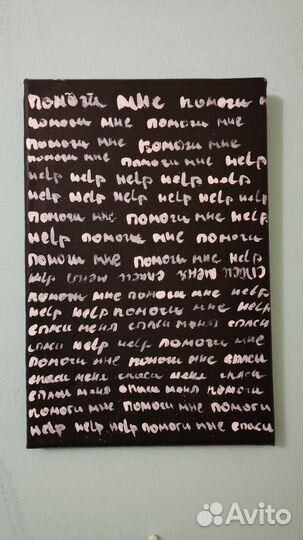 помоги мне помоги м
помоги мне помоги мне
помоги мне помоги мне
помоги мне помоги мне help
help help help help help
help help help help help help
помоги мне помоги мне help
help помоги мне помоги
помоги мне помоги мне help
help спаси меня спаси меня
помоги мне помоги мне help
help help помоги мне help
спаси меня спаси меня спаси
спаси help help помоги мне
помоги мне помоги мне спаси
спаси меня спаси меня спаси
спаси меня спаси меня помоги
помоги мне помоги мне помоги
help help help помоги мне спаси
Avito